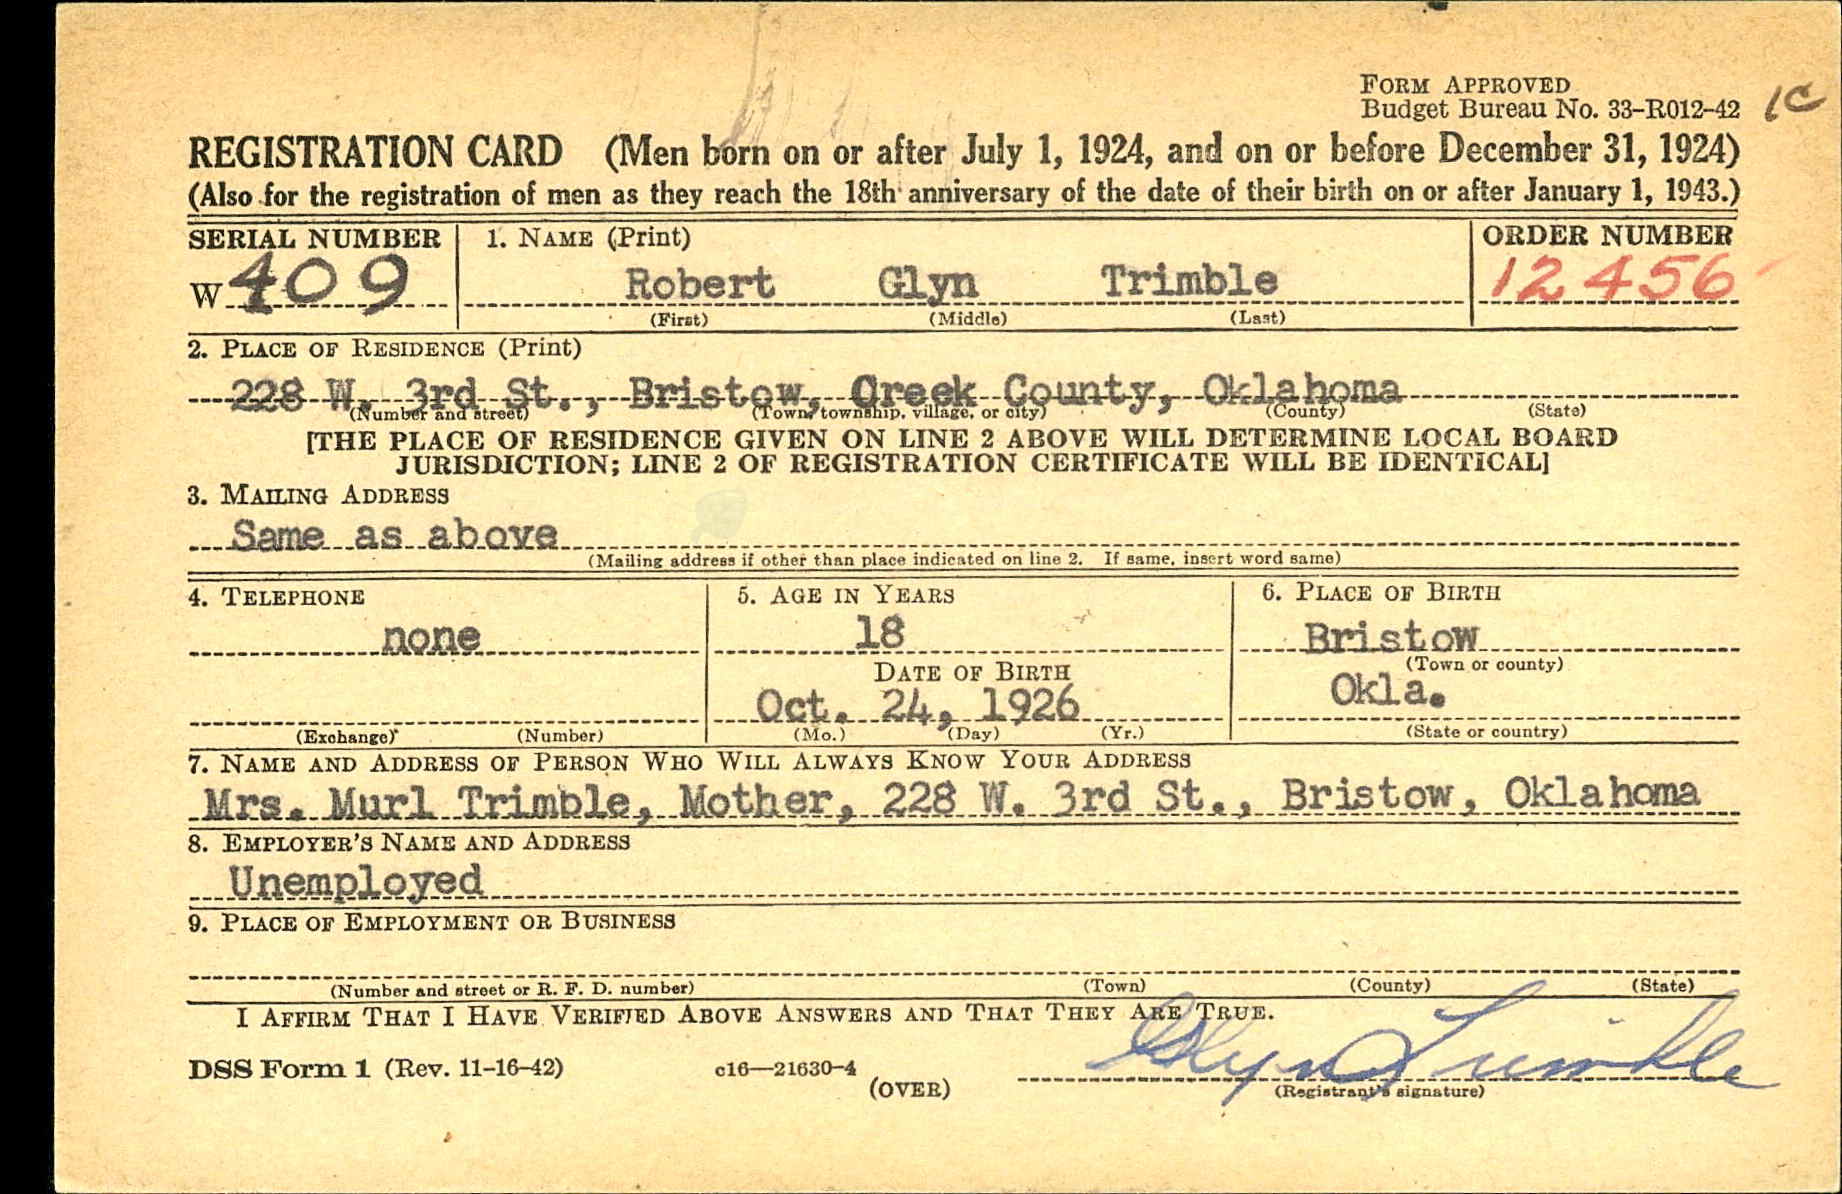 FORM APPROVED
Budget Bureau No. 33-R012-42
1C
REGISTRATION CARD (Men born on or after July 1, 1924, and on or before December 31, 1924)
(Also for the registration of men as they reach the 18th anniversary of the date of their birth on or after January 1, 1943.)
SERIAL NUMBER 1. NAME (Print) ORDER NUMBER
W 409 Robert Glyn Trimble 12456
(First) (Middle) (Last)
2. PLACE OF RESIDENCE (Print)
228 W. 3rd St., Bristow, Creek County, Oklahoma
(Number and street) (Town, township, village, or city) (County) (State)
[THE PLACE OF RESIDENCE GIVEN ON LINE 2 ABOVE WILL DETERMINE LOCAL BOARD
JURISDICTION; LINE 2 OF REGISTRATION CERTIFICATE WILL BE IDENTICAL]
3. MAILING ADDRESS
Same as above
(Mailing address if other than place indicated on line 2. If same, insert word same)
4. TELEPHONE 5. AGE IN YEARS 6. PLACE OF BIRTH
none 18 Bristow
DATE OF BIRTH (Town or county)
Oct. 24, 1926 Okla.
(Exchange) (Number) (Mo.) (Day) (Yr.) (State or country)
7. NAME AND ADDRESS OF PERSON WHO WILL ALWAYS KNOW YOUR ADDRESS
Mrs. Murl Trimble, Mother, 228 W. 3rd St., Bristow, Oklahoma
8. EMPLOYER'S NAME AND ADDRESS
Unemployed
9. PLACE OF EMPLOYMENT OR BUSINESS
(Number and street or R. F. D. number) (Town) (County) (State)
I AFFIRM THAT I HAVE VERIFIED ABOVE ANSWERS AND THAT THEY ARE TRUE.
DSS Form 1 (Rev. 11-16-42) c16—21630-4 Glyn Trimble
(OVER) (Registrant's signature)